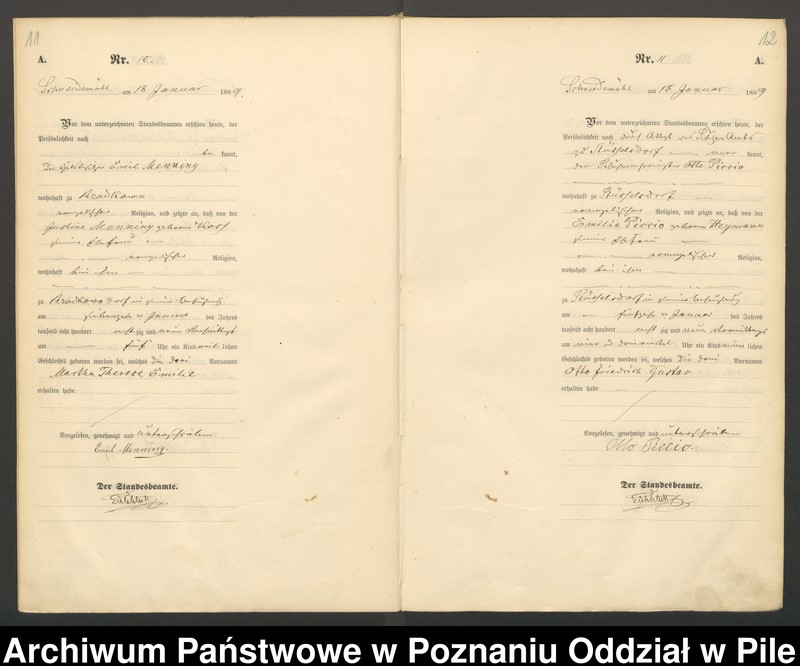 11
A.
Nr. 10.
Schneidemühl am 18 Januar 1889.
Vor dem unterzeichneten Standesbeamten erschien heute, der
Persönlichkeit nach
be kannt,
Emil Menning
wohnhaft zu Kradkowo
evangelischer Religion, und zeigte an, daß von der
Justine Menning geborene
seiner Ehefrau
evangelischer Religion,
wohnhaft bei ihm
zu Kradkowo Dorf in seiner Behausung
am siebenzehn ten Januar des Jahres
tausend acht hundert acht zig und neun Nachmittags
um fünf Uhr ein Kind weib lichen
Geschlechts geboren worden sei, welches die drei Vornamen
Martha Therese Emilie
erhalten habe
Vorgelesen, genehmigt und unterschrieben
Emil Menning.
Der Standesbeamte.
12
Nr. 11
A.
Schneidemühl am 18 Januar 1889
Vor dem unterzeichneten Standesbeamten erschien heute, der
Persönlichkeit nach durch Attest des Schulzen Amts
zu Rüsselsdorf aner kannt,
der Otto Pirrio
wohnhaft zu Rüsselsdorf
evangelischer Religion, und zeigte an, daß von der
Emilie Pirrio geborene Heymann
seiner Ehefrau
evangelischer Religion,
wohnhaft bei ihm
zu Rüsselsdorf in seiner Behausung
am fünfzehn ten Januar des Jahres
tausend acht hundert acht zig und neun Vormittags
um vier ein dreiviertel Uhr ein Kind männ lichen
Geschlechts geboren worden sei, welches die drei Vornamen
Otto Friedrich Gustav
erhalten habe
Vorgelesen, genehmigt und unterschrieben
Otto Pirrio.
Der Standesbeamte.
Archiwum Państwowe w Poznaniu Oddział w Pile